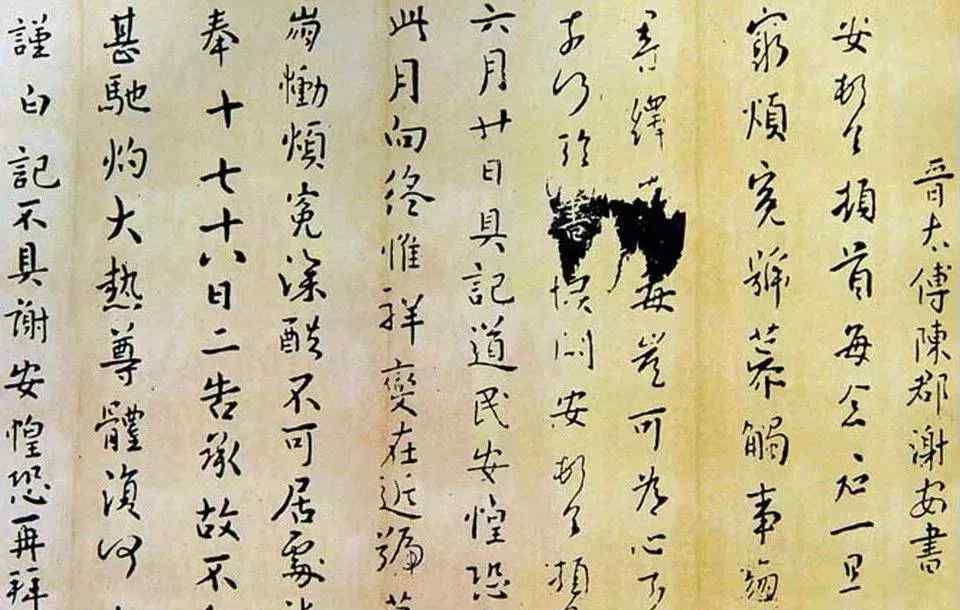 晋太傅陳郡謝安書
安頓首每念君一旦
窮煩冤號慕觸事
尋繹 毒豈可為心
書 悞問安 頓
六月廿日具記道民安惶恐
此月向終惟祥變在近號
崩慟煩冤深酷不可居處
奉十七十六日二告承故不
甚馳灼大熱尊體復何
謹白記不具謝安惶恐再拜